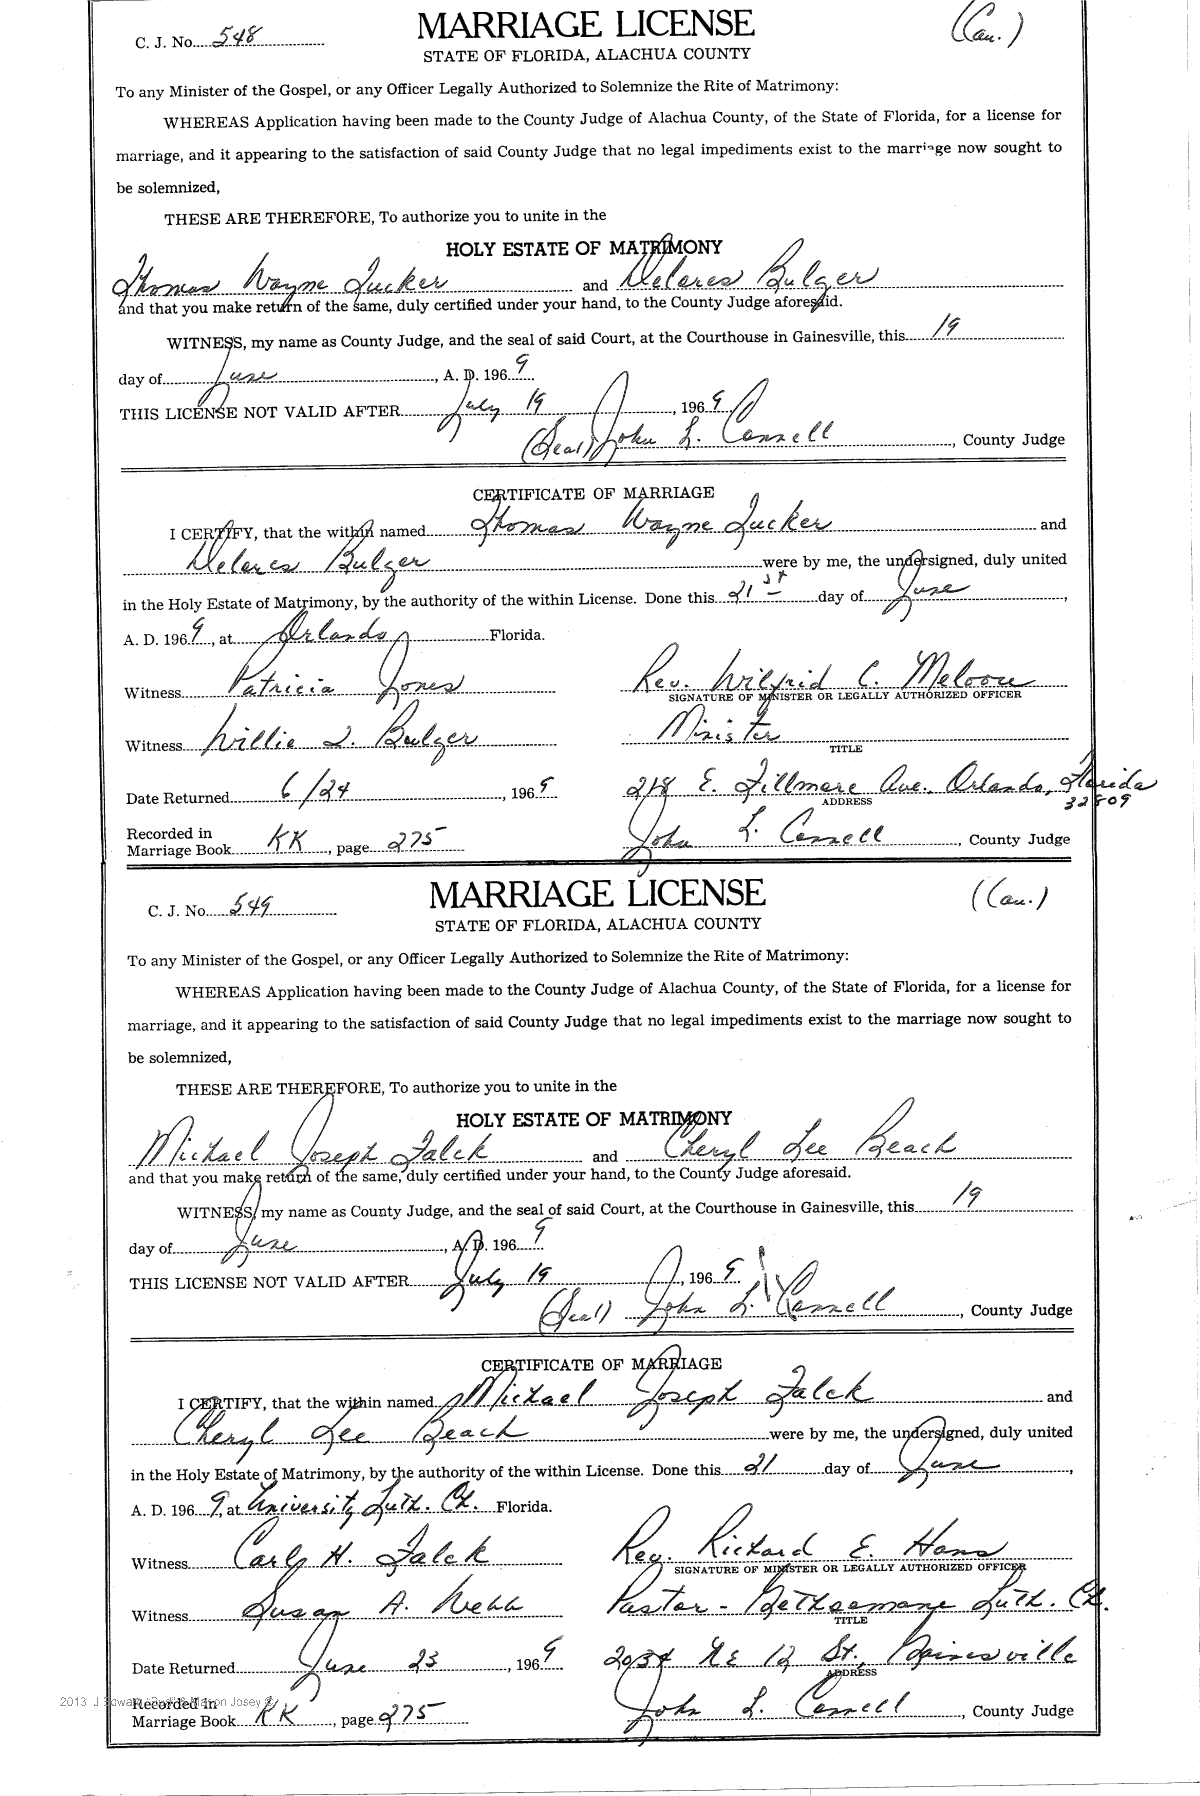 C. J. No. 548
MARRIAGE LICENSE
(Cau.)
STATE OF FLORIDA, ALACHUA COUNTY
To any Minister of the Gospel, or any Officer Legally Authorized to Solemnize the Rite of Matrimony:
WHEREAS Application having been made to the County Judge of Alachua County, of the State of Florida, for a license for
marriage, and it appearing to the satisfaction of said County Judge that no legal impediments exist to the marriage now sought to
be solemnized,
THESE ARE THEREFORE, To authorize you to unite in the
HOLY ESTATE OF MATRIMONY
Thomas Wayne Tucker and Delores Bulger
and that you make return of the same, duly certified under your hand, to the County Judge aforesaid.
WITNESS, my name as County Judge, and the seal of said Court, at the Courthouse in Gainesville, this 19
day of June, A. D. 1969
THIS LICENSE NOT VALID AFTER July 19, 1969
(Seal) John L. Connell, County Judge
CERTIFICATE OF MARRIAGE
I CERTIFY, that the within named Thomas Wayne Tucker and
Delores Bulger were by me, the undersigned, duly united
in the Holy Estate of Matrimony, by the authority of the within License. Done this 21st day of June,
A. D. 1969, at Orlando Florida.
Witness Patricia Jones Rev. Wilfrid C.
SIGNATURE OF MINISTER OR LEGALLY AUTHORIZED OFFICER
Witness Willie J. Bulger Minister
TITLE
Date Returned 6/24, 1969 218 E. Fillmore Ave. Orlando, Florida
ADDRESS 32809
Recorded in
Marriage Book KK, page 275 John L. Connell, County Judge
C. J. No. 549
MARRIAGE LICENSE
(Cau.)
STATE OF FLORIDA, ALACHUA COUNTY
To any Minister of the Gospel, or any Officer Legally Authorized to Solemnize the Rite of Matrimony:
WHEREAS Application having been made to the County Judge of Alachua County, of the State of Florida, for a license for
marriage, and it appearing to the satisfaction of said County Judge that no legal impediments exist to the marriage now sought to
be solemnized,
THESE ARE THEREFORE, To authorize you to unite in the
HOLY ESTATE OF MATRIMONY
Michael Joseph Falck and Cheryl Lee Beach
and that you make return of the same, duly certified under your hand, to the County Judge aforesaid.
WITNESS, my name as County Judge, and the seal of said Court, at the Courthouse in Gainesville, this 19
day of June, A. D. 1969
THIS LICENSE NOT VALID AFTER July 19, 1969
(Seal) John L. Connell, County Judge
CERTIFICATE OF MARRIAGE
I CERTIFY, that the within named Michael Joseph Falck and
Cheryl Lee Beach were by me, the undersigned, duly united
in the Holy Estate of Matrimony, by the authority of the within License. Done this 21 day of June,
A. D. 1969, at University Luth. Ch. Florida.
Witness Carl H. Falck Rev. Richard E. Hans
SIGNATURE OF MINISTER OR LEGALLY AUTHORIZED OFFICER
Witness Susan A. Webb Pastor - Gethsemane Luth. Ch.
TITLE
Date Returned June 23, 1969 2034 NE 12 St., Gainesville
ADDRESS
Recorded in
Marriage Book KK, page 275 John L. Connell, County Judge